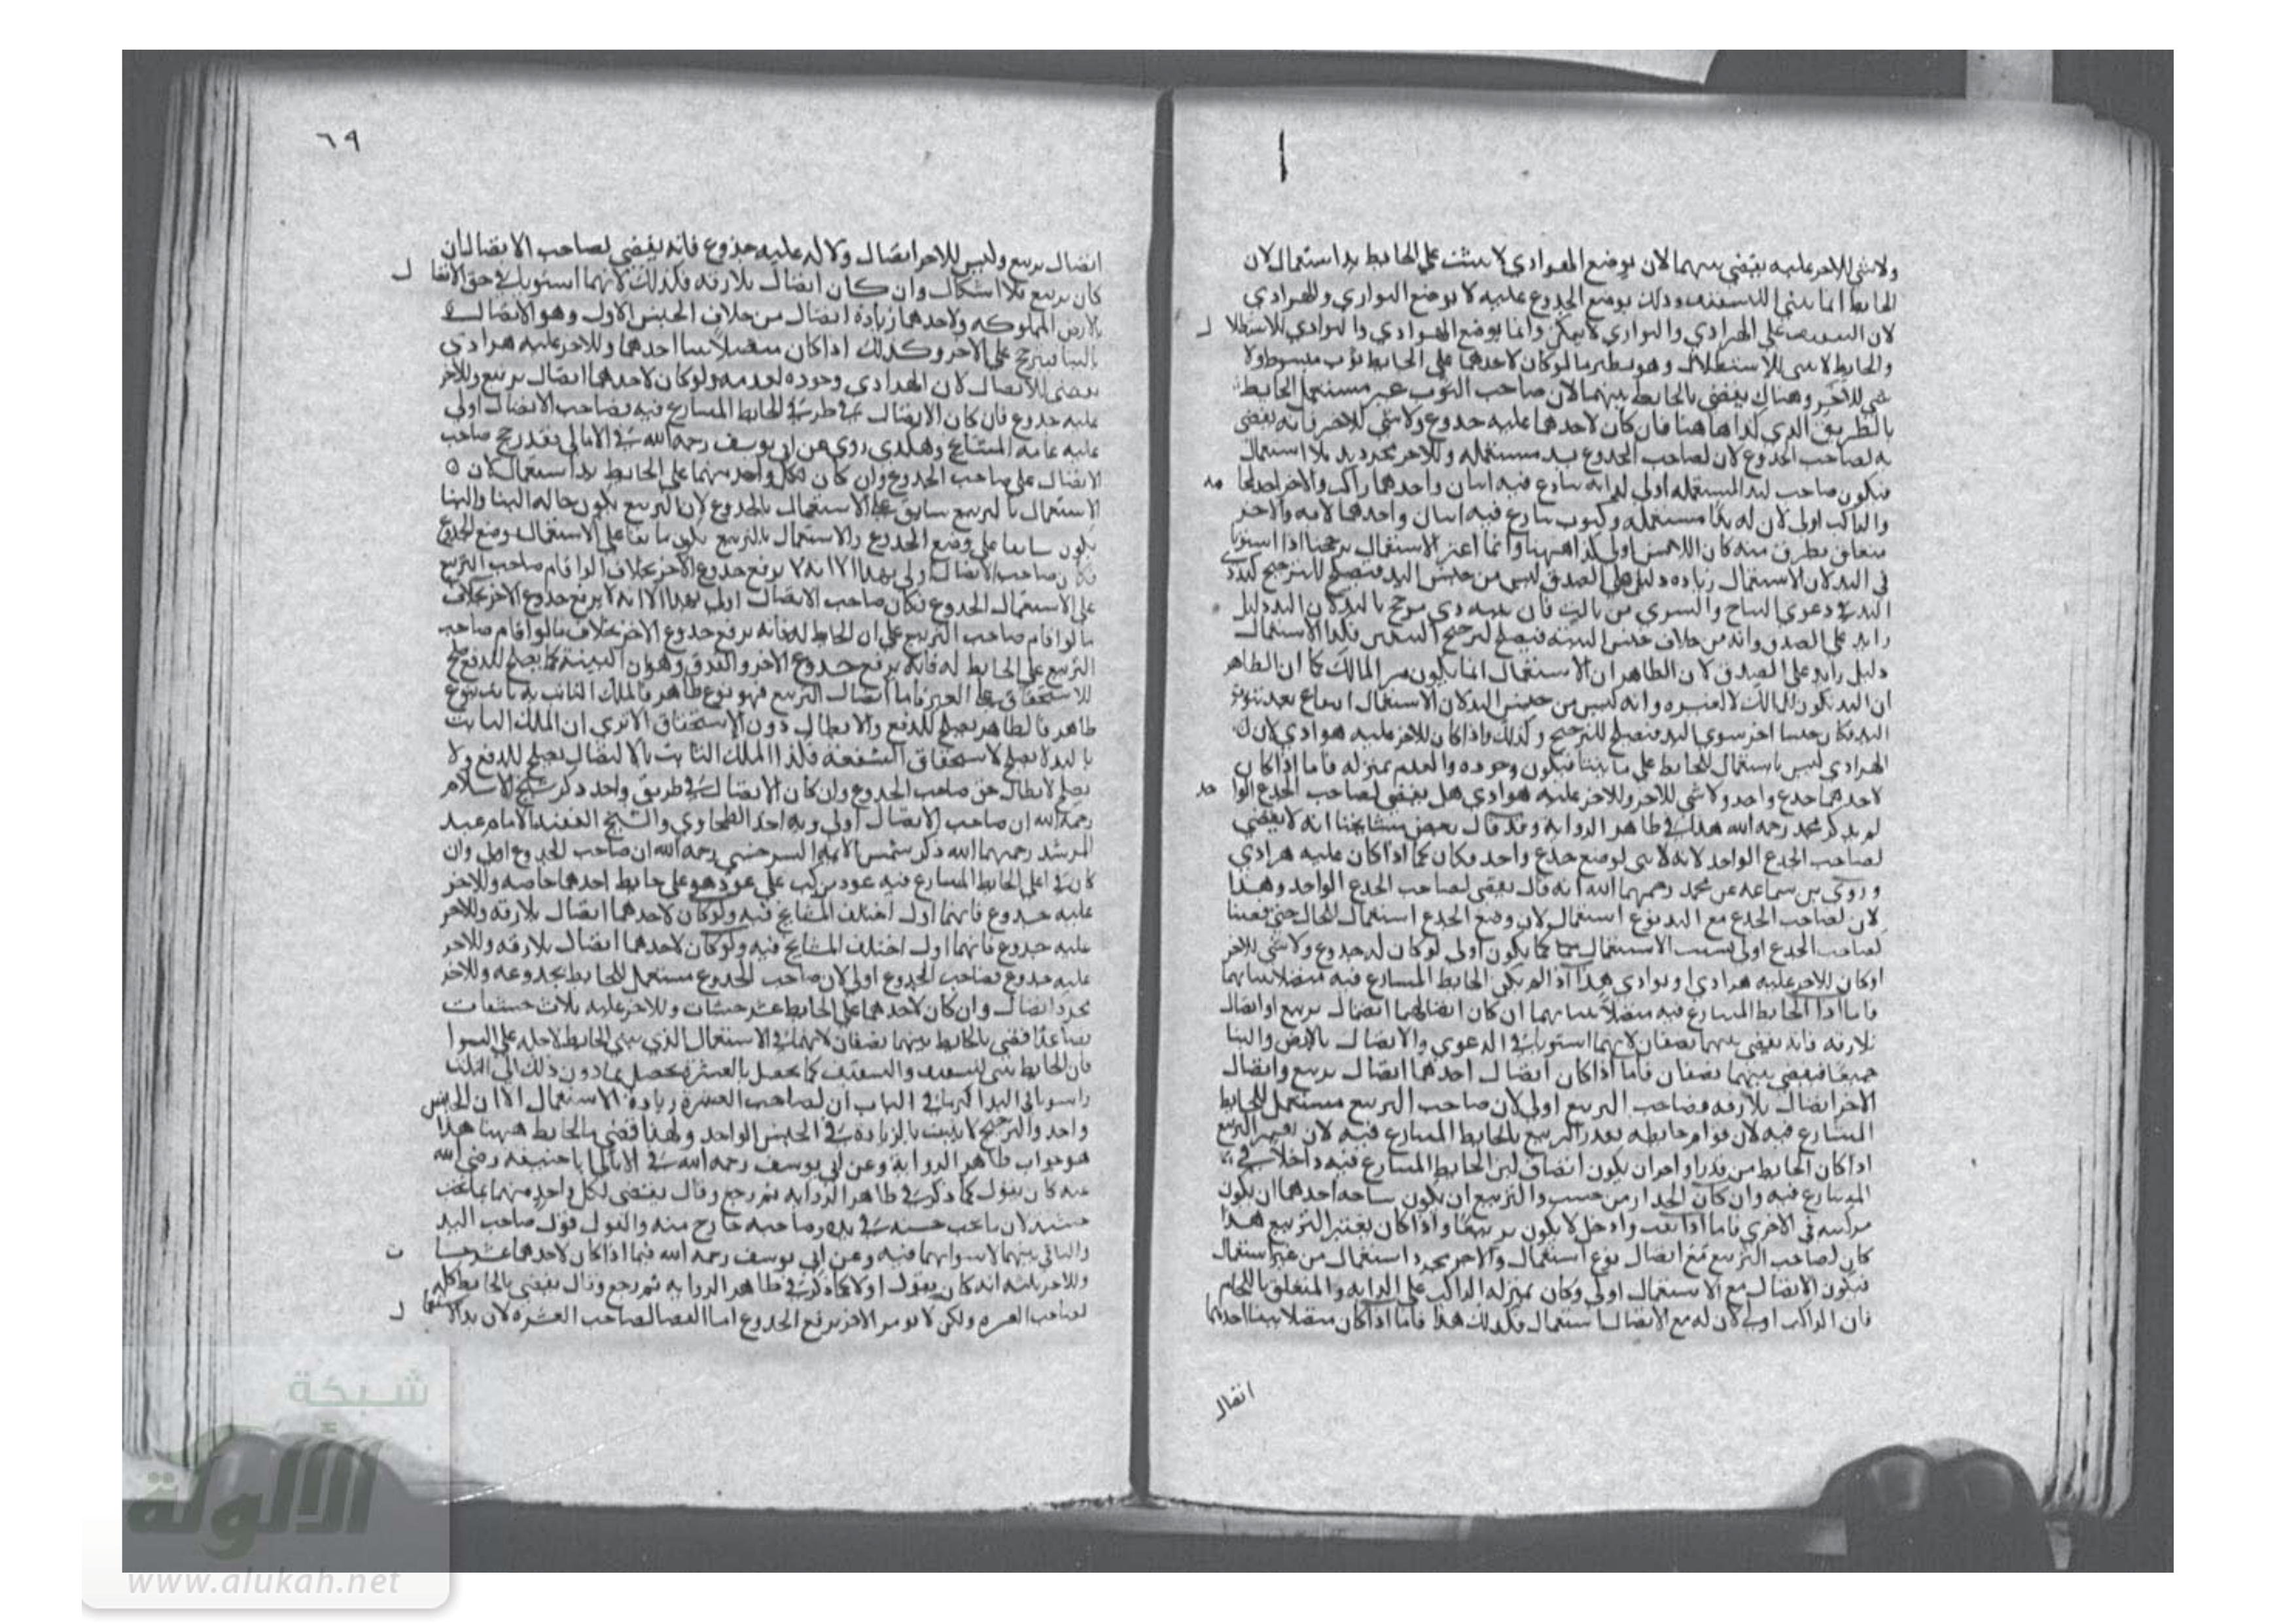 ولا شي للاخر عليه يقضي بينهما لان بوضع الهوادي لا يثبت على الحايط يد استعمال لان
الحايط انما يبنى للتسقيف وذلك بوضع الجذوع عليه لا بوضع البواري والهرادي
لان التسقيف على الهرادي والبواري لا يمكن وانما يوضع الهوادي والبوادي للاستظلال
والحايط لا يبنى للاستظلال وهو نظير ما لو كان لاحدهما على الحايط ثوب مبسوط ولا
شي للاخر وهناك يقضى بالحايط بينهما لان صاحب الثوب غير مستعمل الحايط
بالطريق الذي كذا هاهنا فان كان لاحدهما عليه جذوع ولا شي للاخر فانه يقضى
به لصاحب الجذوع لان لصاحب الجذوع يد مستعملة وللاخر مجرد يد بلا استعمال
فيكون صاحب اليد المستعملة اولى لدابة تنازع فيه اثنان واحدهما راكب والاخر اخذ لجا مه
والراكب اولى لان له يدا مستعملة وكثوب تنازع فيه اثنان واحدهما لابسه والاخر
متعلق بطرف منه كان اللابس اولى كذا ههنا وانما اعتبر الاستعمال ترجيحا اذا استويا
في اليد لان الاستعمال زيادة دليل على الصدق ليس من جنس اليد فتصلح للترجيح
اليد في دعوى النتاج والشرى من ثالث فان بينة ذي مرجح باليد لان اليد دليل
زايد على الصدق وانه من خلاف جنس البينة فيصلح لترجيح البينتين فكذا الاستعمال
دليل زايد على الصدق لان الظاهر ان الاستعمال انما يكون من المالك كما ان الظاهر
ان اليد تكون للمالك لا لغيره وانه ليس من جنس اليد لان الاستعمال انتفاع بعد ثبوت
اليد فكان جنسا اخر سوى اليد فتصلح للترجيح وكذلك اذا كان للاخر عليه هوادي لان
الهرادي ليس باستعمال للحايط على ما بينا فيكون وجوده والعدم بمنزلة فاما اذا كان
لاحدهما جذع واحد ولا شي للاخر وللاخر عليه هوادي هل يقضى لصاحب الجذع الوا حد
لم يذكر محمد رحمه الله هذا في ظاهر الرواية وقد قال بعض مشايخنا انه لا يقضي
لصاحب الجذع الواحد لانه لا يبنى لوضع جذع واحد فكان كما اذا كان عليه هرادي
وروى بن سماعة عن محمد رحمهما الله انه قال يقضى لصاحب الجذع الواحد وهذا
لان لصاحب الجذع مع اليد نوع استعمال لان وضع الجذع استعمال للحال حتى قضينا
لصاحب الجذع اولى بسبب الاستعمال كما يكون اولى لو كان له جذوع ولا شي للاخر
او كان للاخر عليه هرادي او بوادي هذا اذا لم يكن الحايط المتنازع فيه متصلا ببنائهما
فاما اذا الحايط المتنازع فيه متصلا ببنائهما ان كان اتصالهما اتصال تربيع او اتصال
بلازقه فانه يقضى بينهما نصفان لانهما استويا في الدعوى والاتصال بالارض والبنا
جميعا فيقضى بينهما نصفان فاما اذا كان اتصال احدهما اتصال تربيع واتصال
الاخر اتصال بلازقه فصاحب التربيع اولى لان صاحب التربيع مستعمل للحايط
المتنازع فيه لان قوام حايطه بقدر التربيع بالحايط المتنازع فيه لان تفسير التربيع
اذا كان الحايط من مدر او اجر ان يكون انصاف لبن الحايط المتنازع فيه داخلا في
المتنازع فيه وان كان الجدار من خشب والتربيع ان يكون ساحة احدهما ان يكون
مركبه في الاخرى فاما اذا نقب وادخل لا يكون تربيعا واذا كان يعتبر التربيع هذا
كان لصاحب التربيع مع اتصال نوع استعمال والاخر مجرد استعمال من غير استعمال
فيكون الاتصال مع الاستعمال اولى وكان بمنزلة الراكب على الدابة والمتعلق باللجام
فان الراكب اولى لان له مع الاتصال استعمال فكذلك هذا فاما اذا كان متصلا ببنا احدهما
اتصال
٦٩
اتصال تربيع وليس للاخر اتصال ولا له عليه جذوع فانه يقضي لصاحب الاتصال ان
كان تربيع بلا اشكال وان كان اتصال بلازقه فكذلك لانهما استويا في حق الاتصا ل
بالارض المملوكه ولاحدهما زيادة اتصال من خلاف الجنس الاول وهو الاتصال
بالبنا فيترجح على الاخر وكذلك اذا كان متصلا ببنا احدهما وللاخر عليه هرادي
يقضى للاتصال لان الهرادي وجوده لعدمه ولو كان لاحدهما اتصال تربيع وللاخر
عليه جذوع فان كان الاتصال في طرفي الحايط المتنازع فيه فصاحب الاتصال اولى
عليه عامة المشايخ وهكذى روي عن ابي يوسف رحمه الله في الامالي فقد رجح صاحب
الاتصال على صاحب الجذوع وان كان لكل واحد منهما على الحايط يد استعمال لان ٥
الاستعمال بالتربيع سابق على الاستعمال بالجذوع لان التربيع يكون حاله البنا والبنا
يكون سابقا على وضع الجذوع والاستعمال بالتربيع يكون سابقا على الاستعمال بوضع الجذوع
فكان صاحب الاتصال اولى بهذا الا انه لا يرفع جذوع الاخر بخلاف لوا قام صاحب التربيع
على الاستعمال الجذوع فكان صاحب الاتصال اولى بهذا الا انه لا يرفع جذوع الاخر بخلاف
ما لوا قام صاحب التربيع على ان الحايط له فانه يرفع جذوع الاخر بخلاف ما لوا قام صاحب
التربيع على الحايط له فانه يرفع جذوع الاخر والفرق وهو ان البينة كما يصلح للدفع يصلح
للاستحقاق على الغير فاما اتصال التربيع فهو نوع ظاهر فالملك الثابت به ثابت بنوع
ظاهر فالظاهر يصلح للدفع والابطال دون الاستحقاق الا ترى ان الملك الثابت
باليد لا يصلح لاستحقاق الشفعة فكذا الملك الثابت بالاتصال يصلح للدفع ولا
يصلح لابطال حق صاحب الجذوع وان كان الاتصال في طريق واحد ذكر شيخ الاسلام
رحمه الله ان صاحب الاتصال اولى وبه اخذ الطحاوي والشيخ الفقيه الامام عبد
المرشد رحمهما الله ذكر شمس الايمة السرخسي رحمه الله ان صاحب الجذوع اولى وان
كان في اعلى الحايط المتنازع فيه عود مركب على عود هو على حايط احدهما خاصه وللاخر
عليه جذوع فانهما اول اختلف المشايخ فيه ولو كان لاحدهما اتصال بلازقه وللاخر
عليه جذوع فانهما اول اختلف المشايخ فيه ولو كان لاحدهما اتصال بلازقه وللاخر
عليه جذوع فصاحب الجذوع اولى لان صاحب الجذوع مستعمل للحايط بجذوعه وللاخر
مجرد اتصال وان كان لاحدهما على الحايط عشر خشبات وللاخر عليه ثلاث خشبات
فصاعدا فقضى بالحايط بينهما نصفان لانهما في الاستعمال الذي يبنى الحايط لاجله على السوا
فان الحايط يبنى للتسقيف والتسقيف كما يحصل بالعشرة يحصل بما دون ذلك الى الثلث
واستويا في اليد اكثر ما في الباب ان لصاحب العشرة زيادة الاستعمال الا ان الجنس
واحد والترجيح لا يثبت بالزيادة في الجنس الواحد ولهذا قضى بالحايط ههنا هذا
هو جواب ظاهر الرواية وعن ابي يوسف رحمه الله في الامالي ابا حنيفه رضي الله
عنه كان يقول كما ذكر في ظاهر الرواية ثم رجع وقال يقضى لكل واحد منهما بما تحت
خشبته لان ما تحت خشبه في يده وصاحبه خارج منه والقول قول صاحب اليد
والباقي بينهما لاستوايهما فيه وعن ابي يوسف رحمه الله فيما اذا كان لاحدهما عشر خشبا ت
وللاخر ثلثه انه كان يقول اولا كما ذكر في ظاهر الرواية ثم رجع وقال يقضى بالحايط كله
لصاحب العشرة ولكن لا يومر الاخر برفع الجذوع اما القضا لصاحب العشرة لان يد الاستعما ل
شبكة
الألولة
www.alukah.net